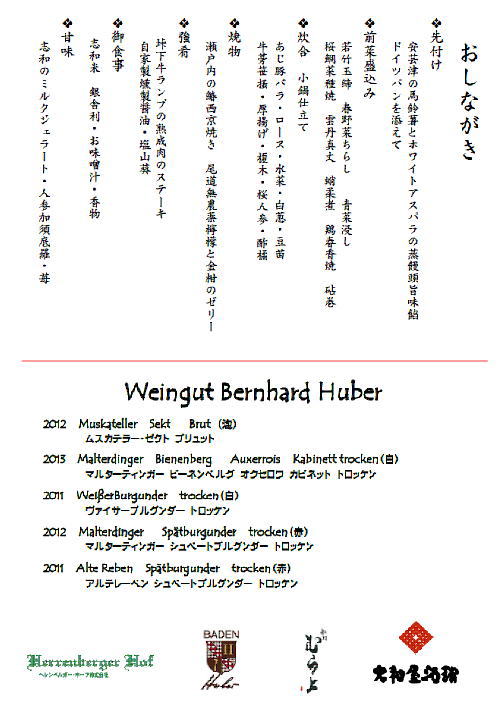 おしながき
❖先付け
安芸津の馬鈴薯とホワイトアスパラの蒸饅頭旨味餡
ドイツパンを添えて
❖前菜盛込み
若竹玉締 春野菜ちらし 青菜浸し
桜鯛菜種焼 雲丹真丈 蛸柔煮 鶏春香焼 砧巻
❖炊合 小鍋仕立て
あじ豚バラ・ロース・水菜・白葱・豆苗
牛蒡笹掻・厚揚げ・榎木・桜人参・酢橘
❖焼物
瀬戸内の鰆西京焼き 尾道無農薬檸檬と金柑のゼリー
❖強肴
峠下牛ランプの熟成肉のステーキ
自家製燻製醤油・塩山葵
❖御食事
志和米 銀舎利・お味噌汁・香物
❖甘味
志和のミルクジェラート・人参加須底羅・苺
Weingut Bernhard Huber
2012 Muskateller Sekt Brut (泡)
ムスカテラー・ゼクト ブリュット
2013 Malterdinger Bienenberg Auxerrois Kabinett trocken (白)
マルターディンガー ビーネンベルグ オクセロワ カビネット トロッケン
2011 Weißerburgunder trocken (白)
ヴァイサーブルグンダー トロッケン
2012 Malterdinger Spätburgunder trocken (赤)
マルターディンガー シュペートブルグンダー トロッケン
2011 Alte Reben Spätburgunder trocken (赤)
アルテレーベン シュペートブルグンダー トロッケン
Herrenberger Hof
ヘレンベルガー・ホーフ株式会社
BADEN
H
Huber
むらよ
大和屋酒舗